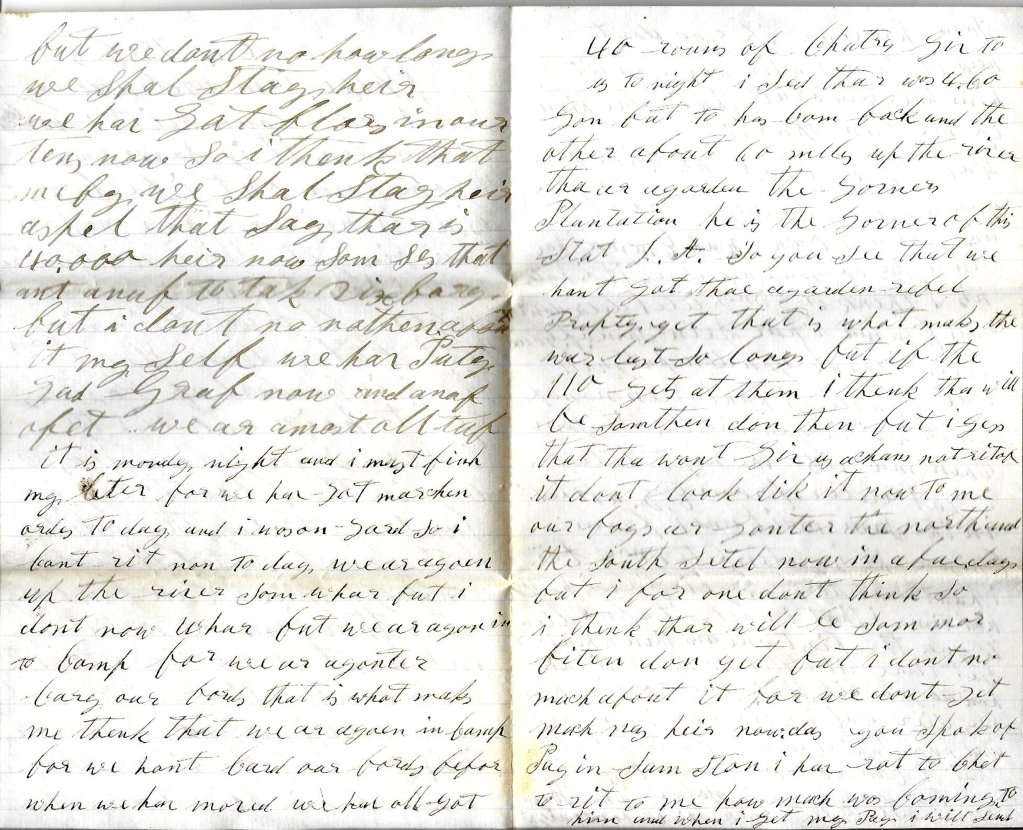 but we dont no how long
we Shal Stay heir
we har got flors in our
tens now So i thenk that
mebey we Shal Stay heir
aspel that Say thar is
40.000 heir now Som Ses that
ant anaf to tak
but i dont no nothen about
it my Self we har Puty
gad Graf now and anaf
of et we ar amost all tuf
it is monday night and i must finh
my leter for we har got marchen
ordes to day and i wos on gard So i
cant rit non to day we ar agoen
up the river Som whar but i
dont now Whar but we ar agon in
to Camp for we ar agonter
cary our bords that is what maks
me thenk that we ar agoen in Camp
for we hant card our bords befor
when we har moved we har all got
40 rouns of Catrg Gir to
us to night i Sed thar wos 4.60
Gon but to has Com back and the
other about 60 mills up the river
tha ar agarden the Govners
Plantation he is the Govner of this
Stat L. A. So you See that we
hant got thae agarden rebel
Propty yet that is what maks the
war last So long but if the
110 gets at them i thenk tha will
be Somthen don then but i gess
that tha wont Gir us a chans not ritof
it dont look lik it now to me
our boys ar gonter the north and
the South Setel now in a fue days
but i for one dont think So
i thenk thar will be Som mor
fiten don yet but i dont no
mach about it for we dont get
mach nus heir nowdas you Spok of
Payin Sam Ston i har rot to Chet
to rit to me how mach was Coming to
him and when i get my Pay i will Sent